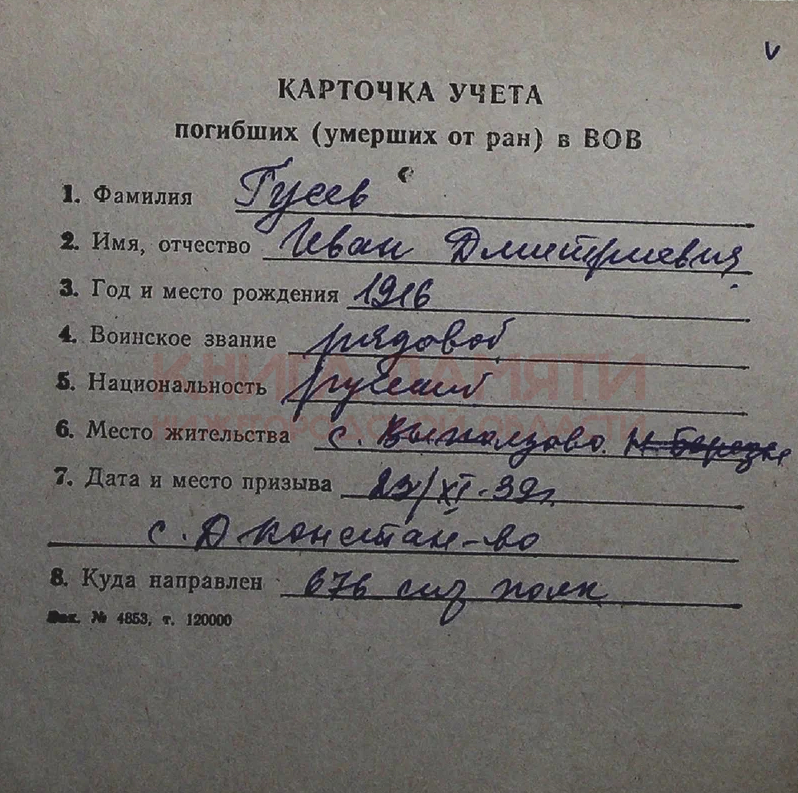 v
КАРТОЧКА УЧЕТА
погибших (умерших от ран) в ВОВ
1. Фамилия Гусев
2. Имя, отчество Иван Дмитриевич
3. Год и место рождения 1916
4. Воинское звание рядовой
5. Национальность русский
КНИГА ПАМЯТИ
НИЖЕГОРОДСКОЙ ОБЛАСТИ
6. Место жительства с. Выползово.
7. Дата и место призыва 23/XI-39г.
с. Д Констан-во
8. Куда направлен 676 полк
Зак. № 4853, т. 120000